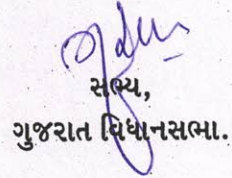 સભ્ય,
ગુજરાત વિધાનસભા.